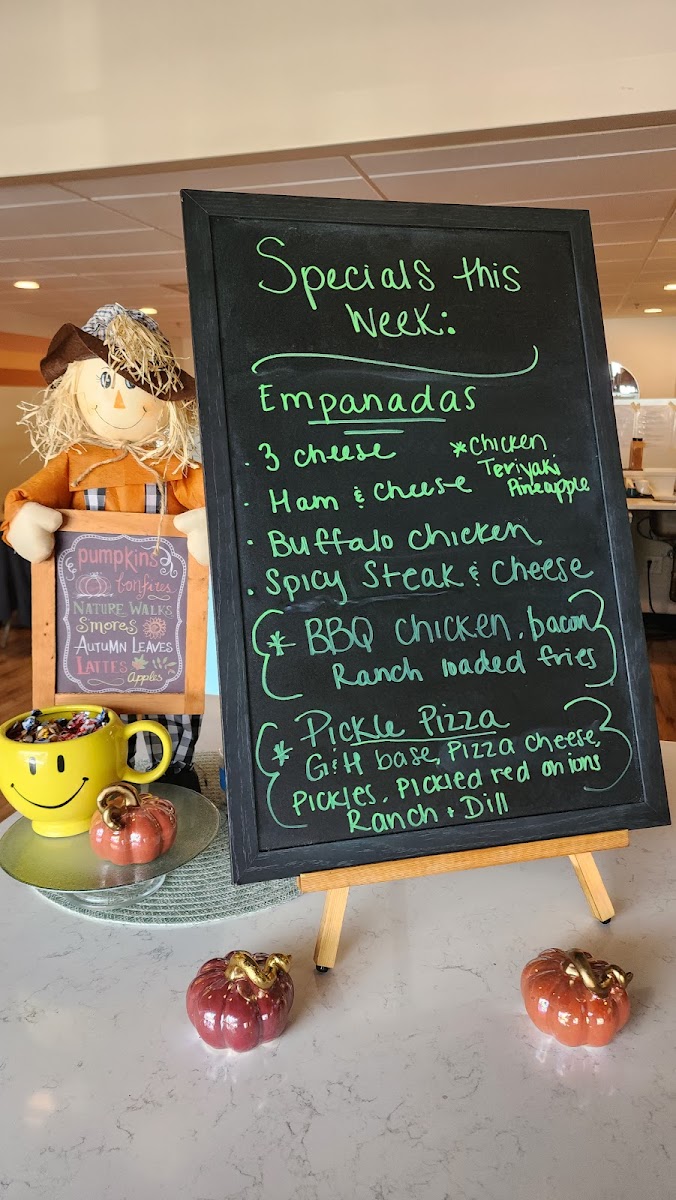 Specials this
Week:
Empanadas
· 3 cheese
· Ham & cheese
*chicken
Teriyaki
Pineapple
· Buffalo chicken
· Spicy Steak & Cheese
* BBQ chicken, bacon
Ranch loaded fries
* Pickle Pizza
G+H base, Pizza cheese,
Pickles, Pickled red onions
Ranch + Dill
pumpkins
bonfires
NATURE WALKS
Smores
AUTUMN LEAVES
LATTES
Apples